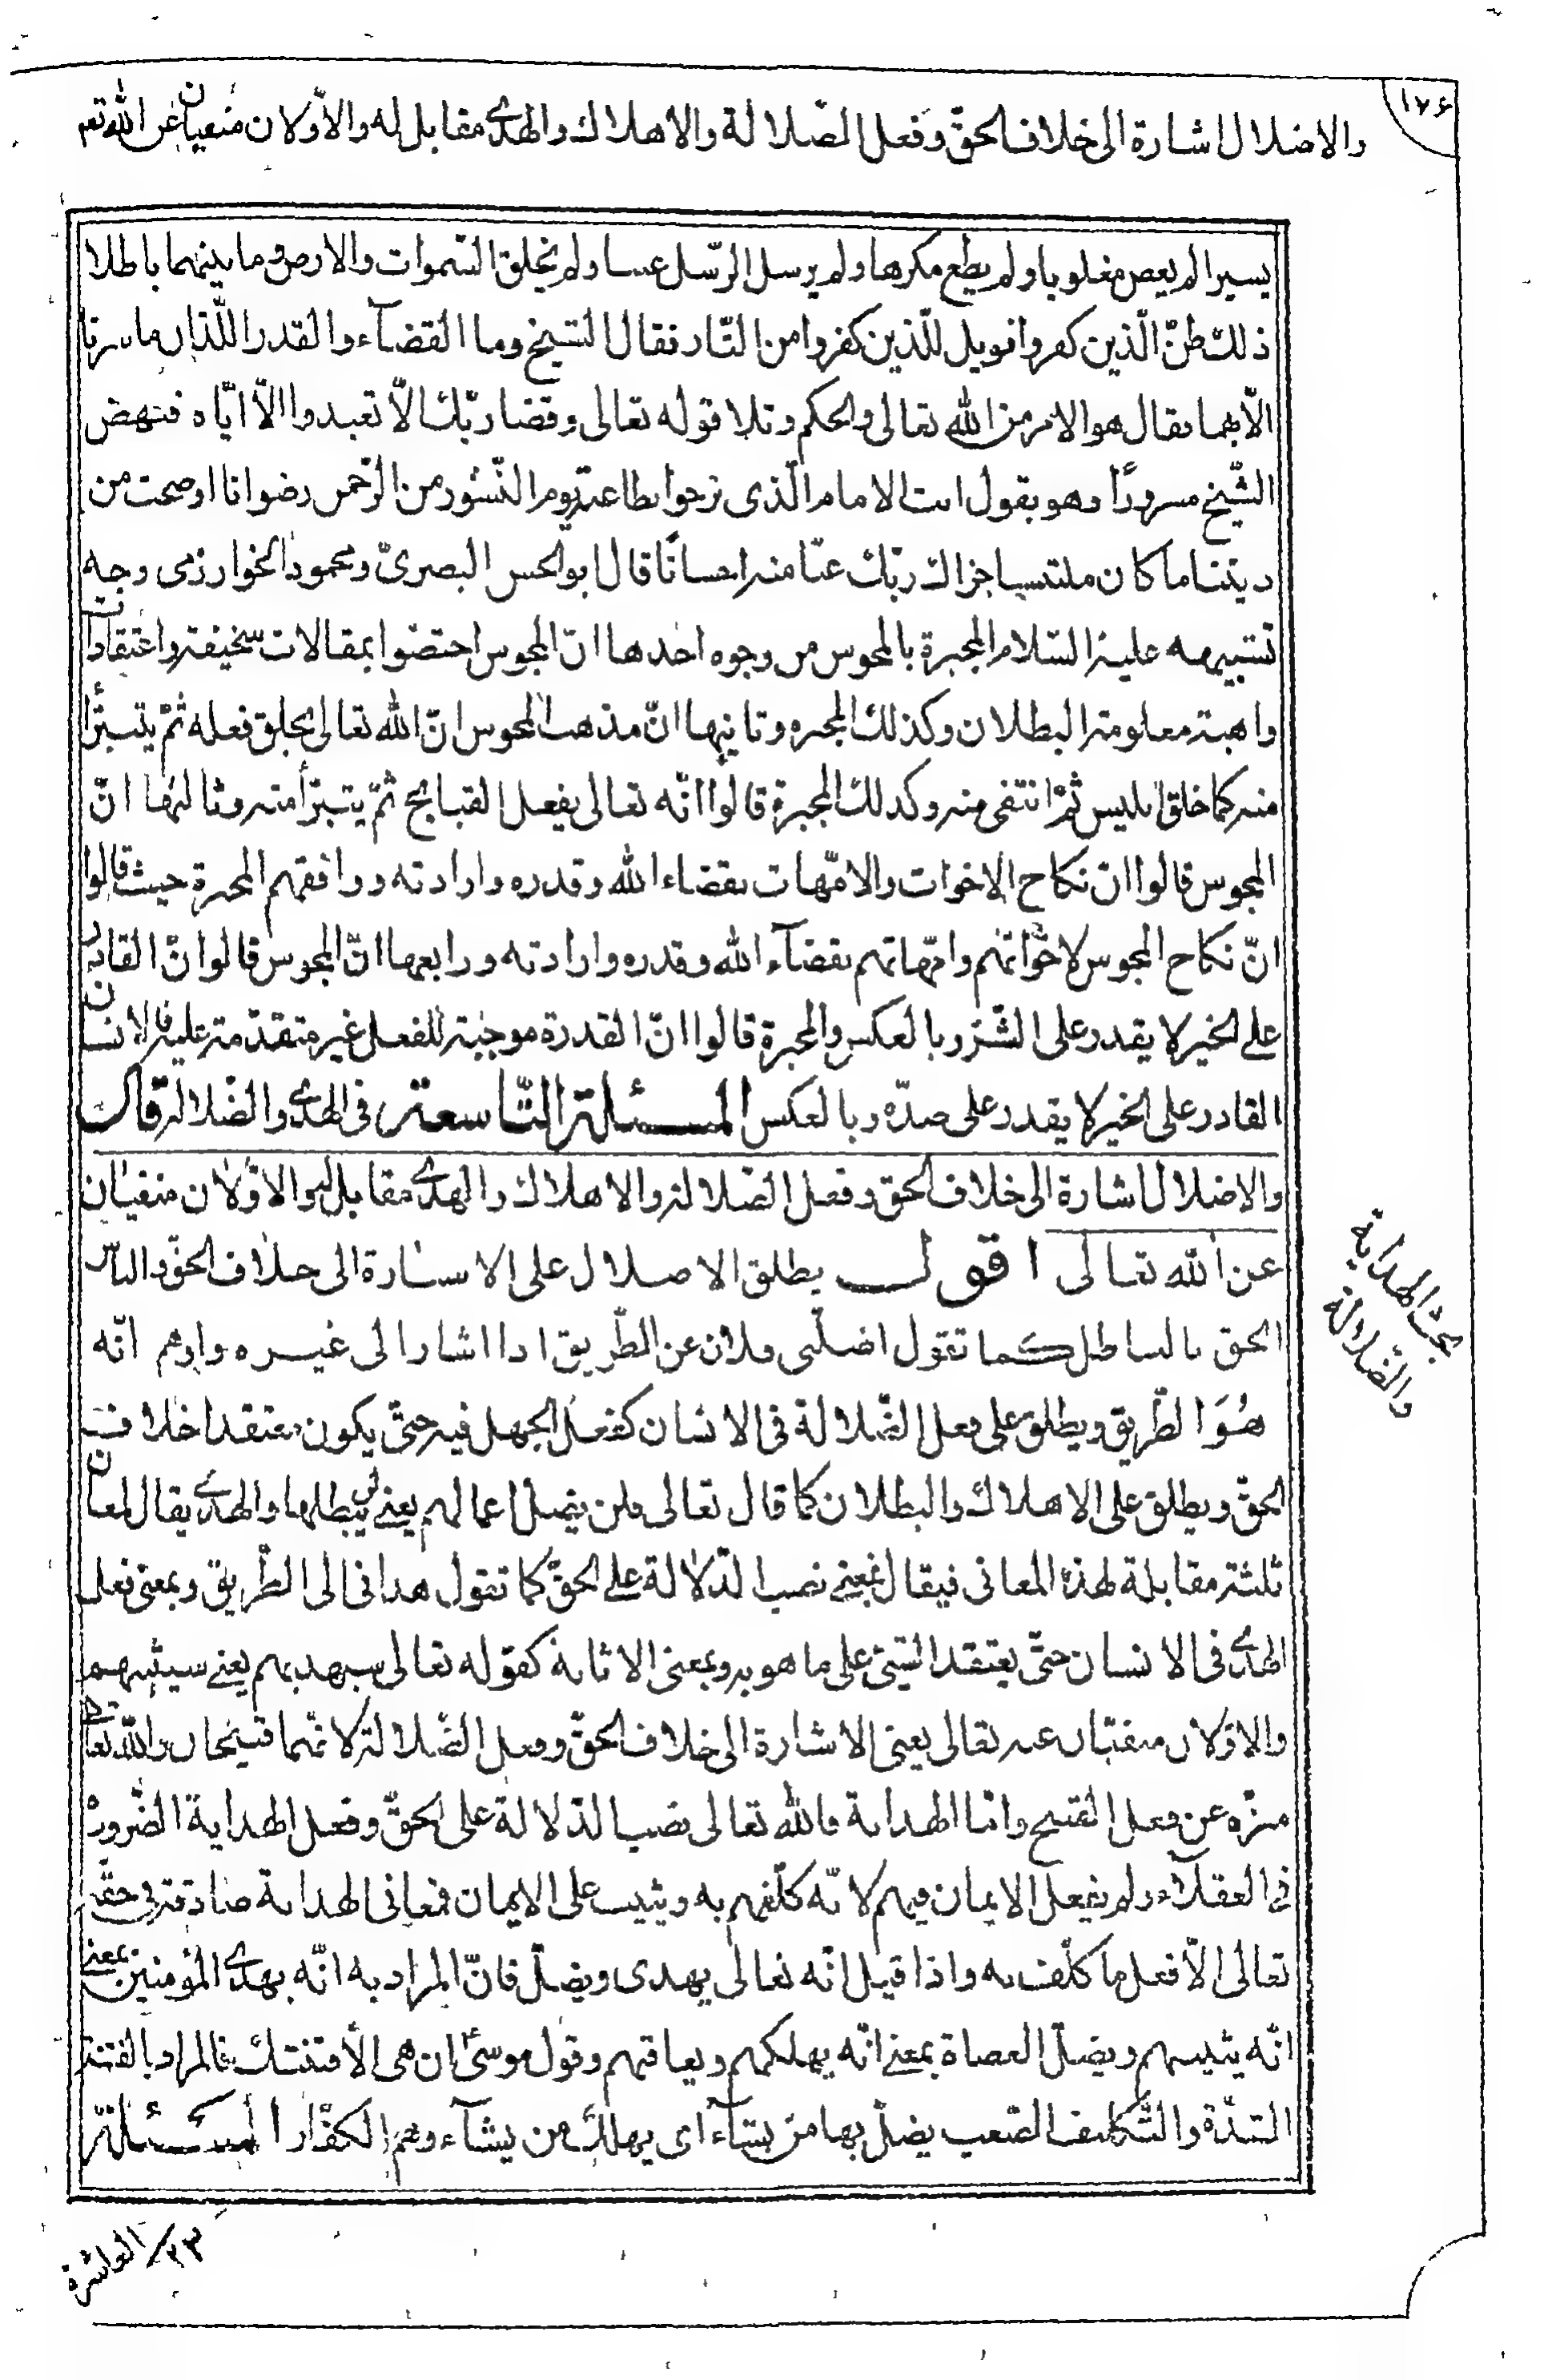 ١٧۶
والاضلال اشارة الى خلاف الحقّ وفعل الضّلالة والاهلاك والهدى مقابل له والاوّلان منفيان عن الله تعم
يسيرا لم يعص مغلوبا ولم يطع مكرها ولم يرسل الرّسل عبسا ولم يخلق السّموات والارض وما بينهما باطلا
ذلك ظنّ الّذين كفروا فويل للّذين كفروا من النّار فقال الشّيخ وما القضآء والقدر اللّذان ما سرنا
الّا بهما فقال هو الامر من الله تعالى والحكم وتلا قوله تعالى وقضا ربّك الّا تعبدوا الّا ايّاه فنهض
الشّيخ مسرورًا وهو يقول انت الامام الّذى نرجوا بطاعته يوم النّشور من الرّحمن رضوانا اوضحت من
ديننا ما كان ملتبسا جزاك ربّك عنّا منه احسانًا قال ابو الحسن البصرىّ ومحمود الخوارزمى وجه
تشبيهه عليه السّلام المجبرة بالمجوس من وجوه احدها انّ المجوس اختصّوا بمقالات سخيفة واعتقادات
واهية معلومة البطلان وكذلك المجبره وثانيها انّ مذهب المجوس انّ الله تعالى يخلق فعله ثمّ يتبرّأ
منه كما خلق ابليس ثمّ انتفى منه وكذلك المجبرة قالوا انّه تعالى يفعل القبايح ثمّ يتبرّأ منه وثالثها انّ
المجوس قالوا ان نكاح الاخوات والامّهات بقضاء الله وقدره وارادته ووافقهم المجبرة حيث قالوا
انّ نكاح المجوس لاخوّاتهم وامّهاتهم بقضآء الله وقدره وارادته ورابعها انّ المجوس قالوا انّ القادر
على الخير لا يقدر على الشّرّ وبالعكس والمجبرة قالوا انّ القدرة موجبة للفعل غير متقدّمة عليه فالانسان
القادر على الخير لا يقدر على ضدّه وبالعكس المسئلة التّاسعة فى الهدى والضّلالة قال
والاضلال اشارة الى خلاف الحق وفعل الضّلالة والاهلاك والهدى مقابل له والاوّلان منفيان
عن الله تعالى اقول يطلق الاضلال على الاشارة الى خلاف الحقّ والباس
الحق بالباطل كما تقول اضلّنى فلان عن الطّريق اذا اشار الى غيره واوهم انّه
هُوَ الطّريق ويطلق على فعل الضّلالة فى الانسان كفعل الجهل فيه حتّى يكون معتقدا خلاف
الحقّ ويطلق على الاهلاك والبطلان كما قال تعالى فلن يضلّ اعمالهم يعنى لن يبطلها والهدى يقال لمعان
ثلثة مقابلة لهذه المعانى فيقال بمعنى نصب الدّلالة على الحقّ كما تقول هدانى الى الطّريق وبمعنى فعل
الهدى فى الانسان حتّى يعتقد الشّىء على ما هو به وبمعنى الاثابة كقوله تعالى سيهديهم يعنى سيثيبهم
والاوّلان منفيّان عنه تعالى يعنى الاشارة الى خلاف الحقّ وفعل الضّلالة لانّهما قبيحان والله تعالى
منزّه عن فعل القبيح وامّا الهداية فالله تعالى نصب الدّلالة على الحقّ وفعل الهداية الضّرورية
فى العقلآء ولم يفعل الايمان فيهم لانّه كلّفهم به ويثيب على الايمان فمعانى الهداية صادقة فى حقّه
تعالى الّا فعل ما كلّف به واذا قيل انّه تعالى يهدى ويضلّ فانّ المراد به انّه يهدى المؤمنين بمعنى
انّه يثيبهم ويضلّ العصاة بمعنى انّه يهلكهم ويعاقبهم وقول موسىٰ ان هى الّا فتنتك فالمراد بالفتنة
الشدّة والتّكليف الصّعب يضلّ بها من يشآء اى يهلك من يشآء وهم الكفّار المسئلة
العاشرة
٢٣
بحث الهداية
والضّلالة